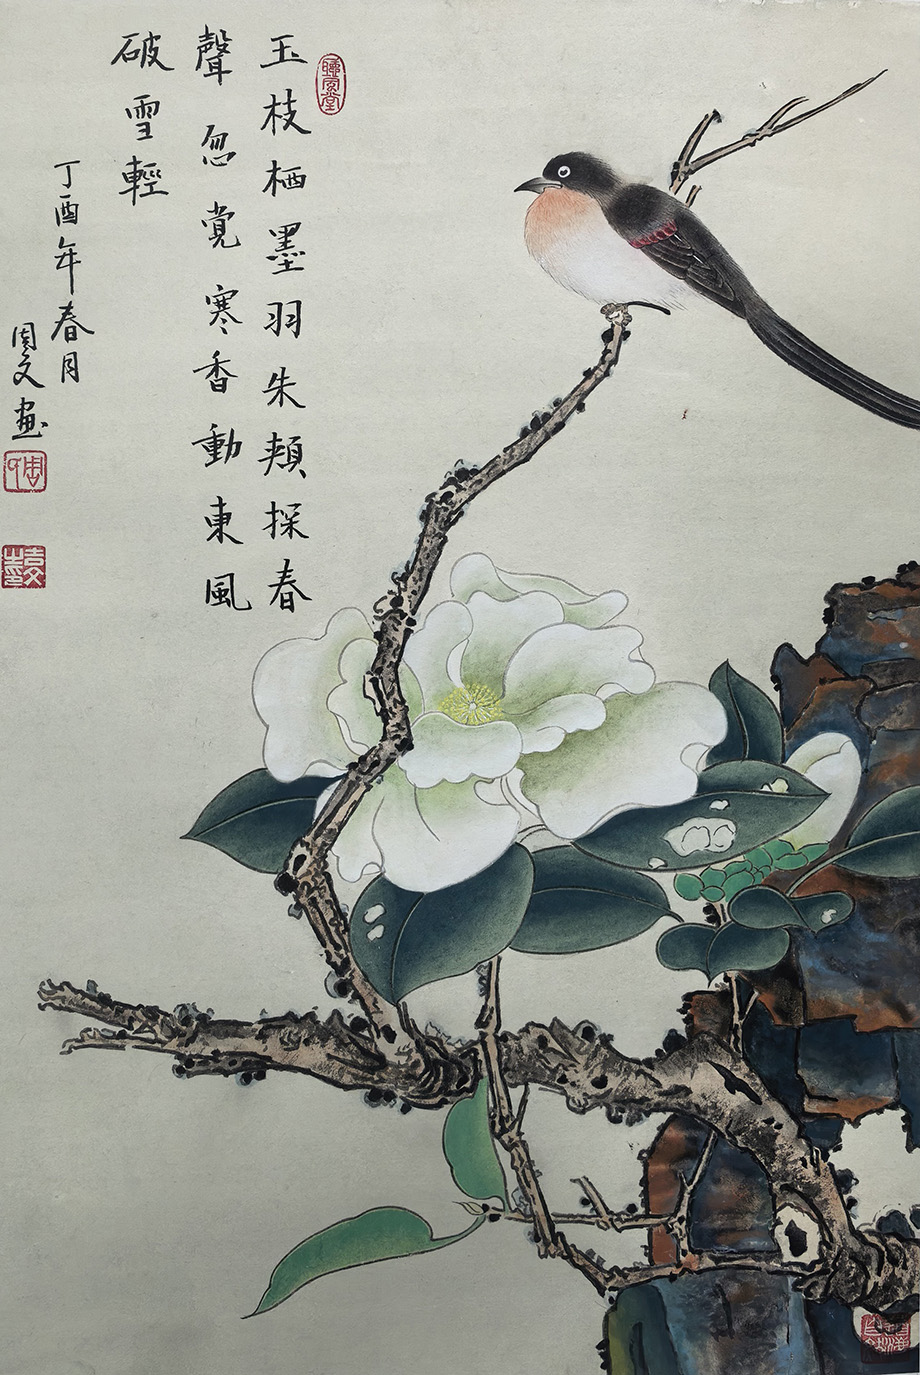 玉枝栖墨羽朱頰探春
聲忽覚寒香動東風
破雪輕
丁酉年春月
周文畫